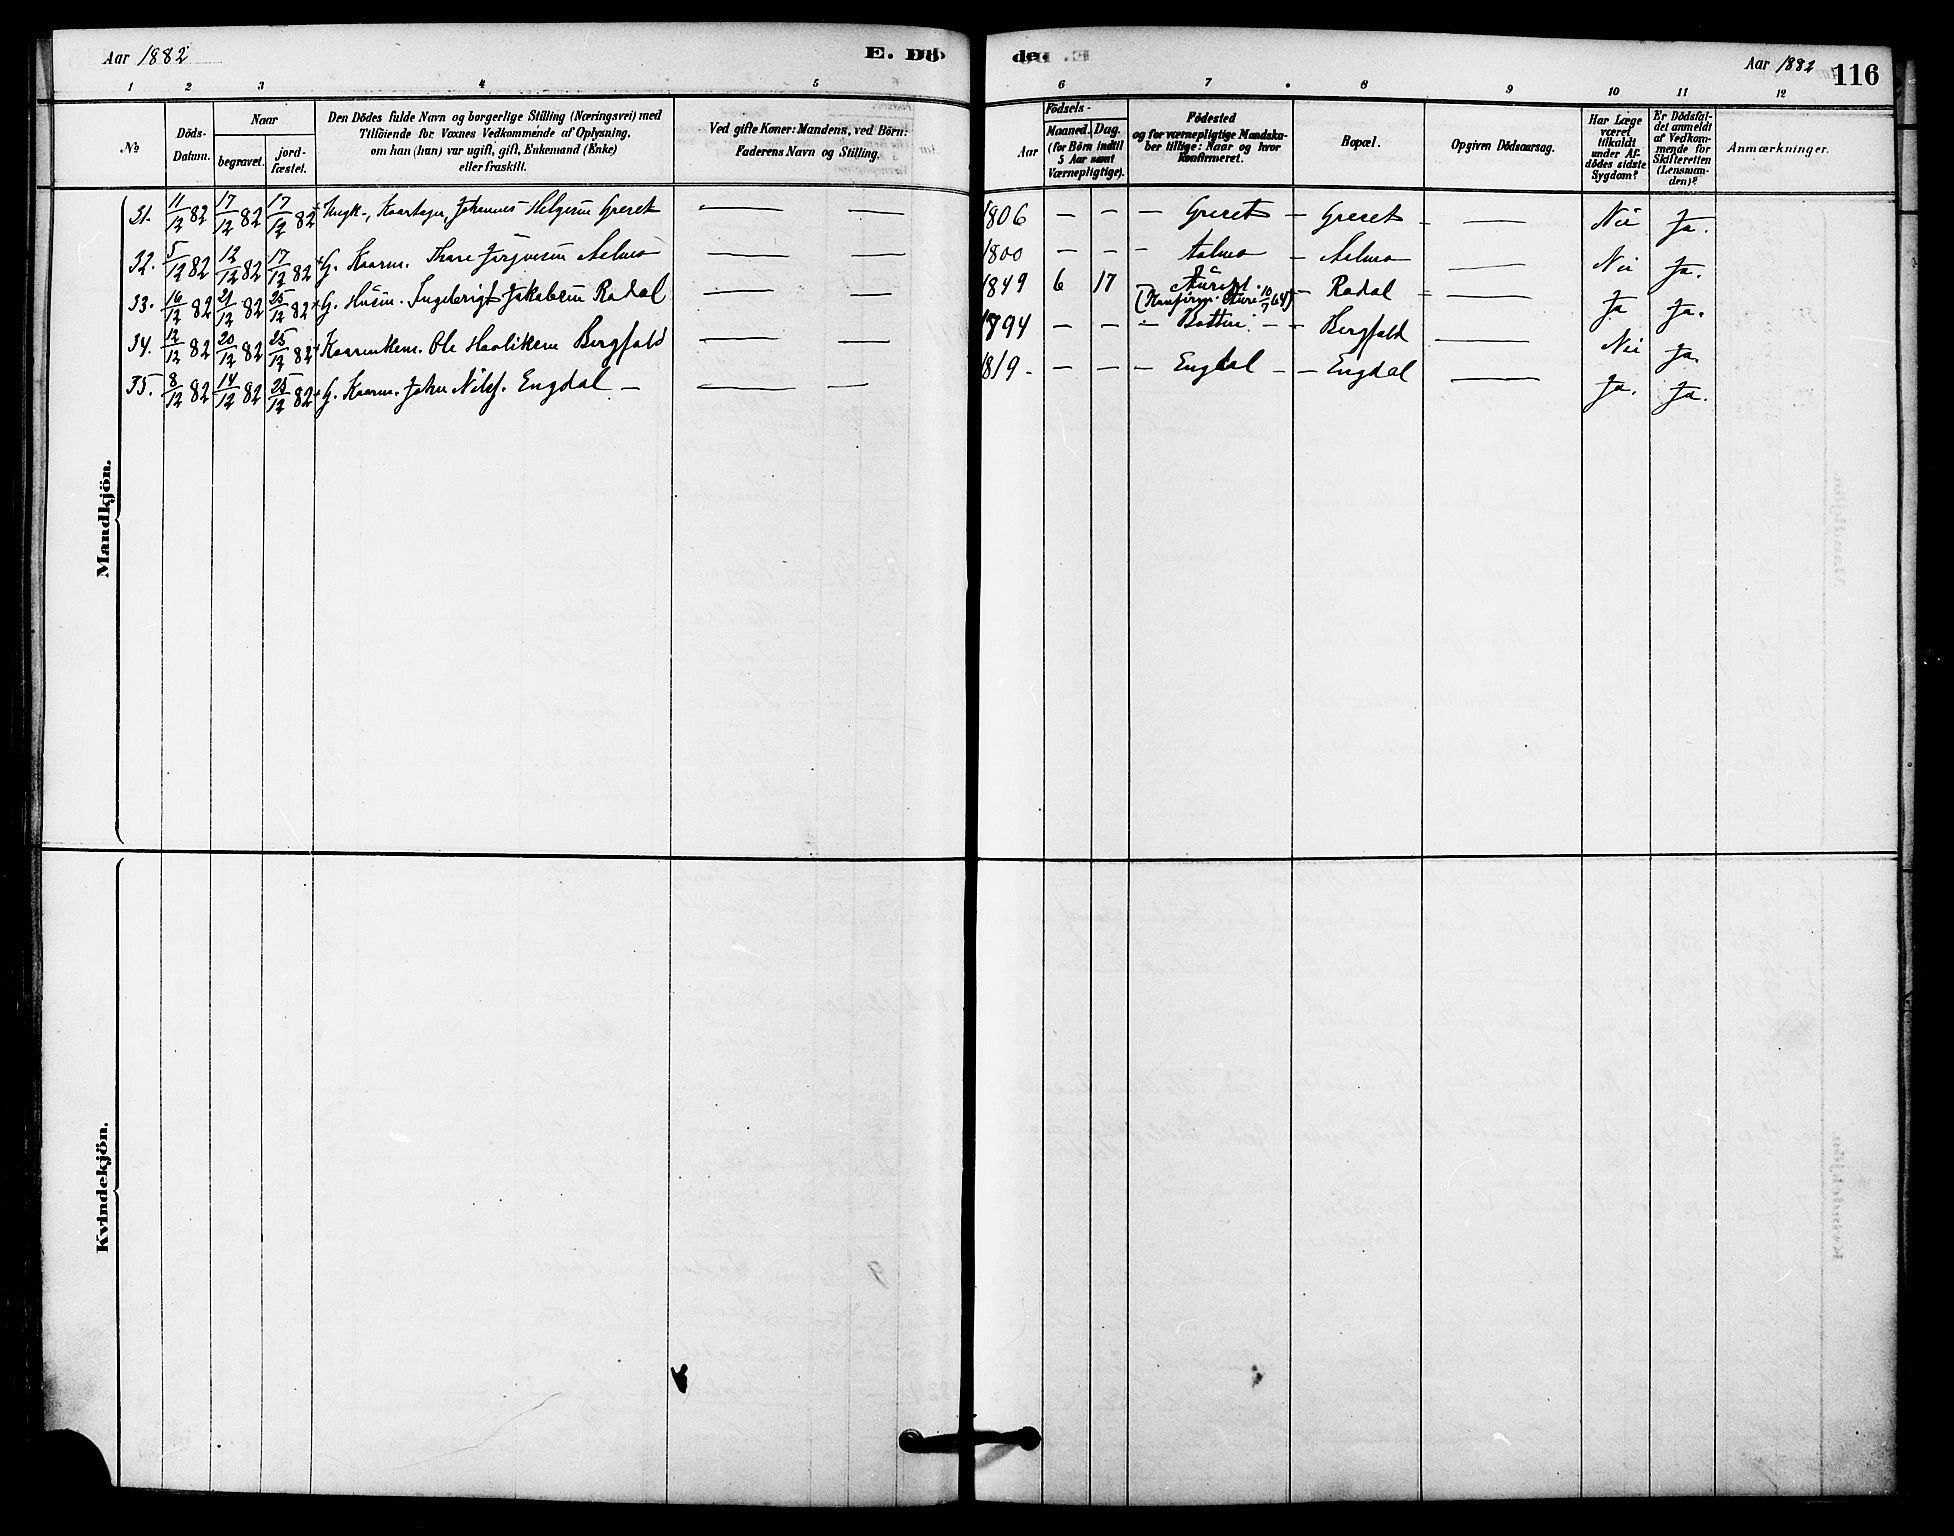 Aar 1882
E. Dö
de
Aar 1882 116
1 2 3 4 5 6 7 8 9 10 11 12
No
Döds-
Datum.
Naar
begravet.
jord-
fæstet.
Den Dödes fulde Navn og borgerlige Stilling (Næringsvei) med
Tilföiende for Voxnes Vedkommende af Oplysning,
om han (hun) var ugift, gift, Enkemand (Enke)
eller fraskilt.
Ved gifte Koner: Mandens, ved Börn:
Faderens Navn og Stilling.
Födsels-
Aar
Maaned.
Dag.
(for Börn indtil
5 Aar samt
Værnepligtige).
Födested
og for værnepligtige Mandska-
ber tillige: Naar og hvor
Konfirmeret.
Bopæl.
Opgiven Dödsaarsag.
Har Læge
været
tilkaldt
under Af-
dödes sidste
Sygdom?
Er Dödsfal-
det anmeldt
af Vedkom-
mende for
Skifteretten
(Lensman-
den)?
Anmærkninger.
Mandkjön.
31. 11/12 82 17/12 82 17/12 82 Johannes Helgesen Greset — — 1806 — — — Greset — Greset — — Nei Ja.
32. 5/12 82 12/12 82 17/12 82 G. Kaarm. Thore Jörgensen Aelmo — — 1800 — — — Aalmo — Aelmo — Nei Ja.
33. 16/12 82 21/12 82 25/12 82 G. Husm. Ingebrigt Jakobsen Rodal — — 1849 6 17 — Rodal — Ja Ja.
(Konfirm. Aure 10/7 64)
34. 12/12 82 20/12 82 25/12 82 Ole Bergfald — — 1794 — — — Botten — — Bergfald — Nei Ja.
35. 8/12 82 14/12 82 25/12 82 G. Kaarm. John Nilss. Engdal — — — 1819 — — — — Engdal — — Engdal — Ja. Ja.
Kvindekjön.